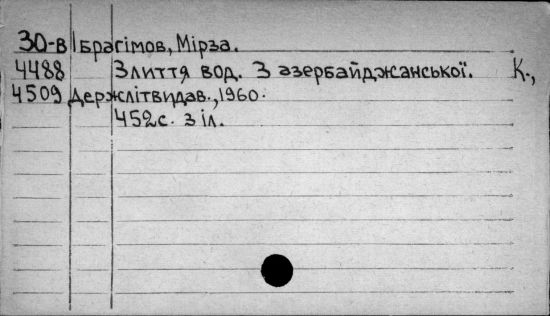 30-в Ібрагімов, Мірза.
4488 Злиття вод. З азербайджанської. К.,
4509 Держлітвидав., 1960.
452с. з іл.